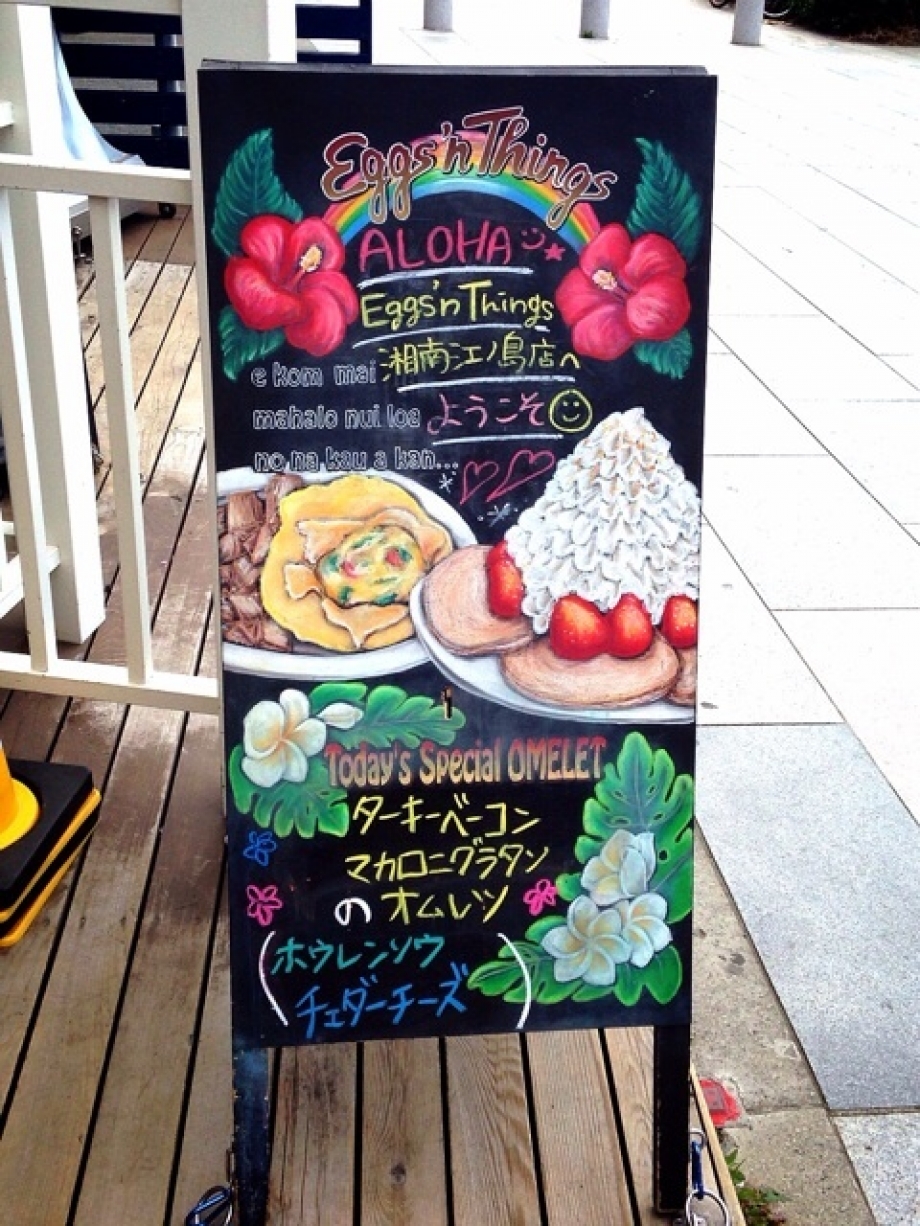 Eggs'n Things
ALOHA
Eggs'n Things
湘南江ノ島店へ
ようこそ
e kom mai
mahalo nui loa
no na kau a kan...
Today's Special OMELET
ターキーベーコン
マカロニグラタン
の オムレツ
(ホウレンソウ
チェダーチーズ)